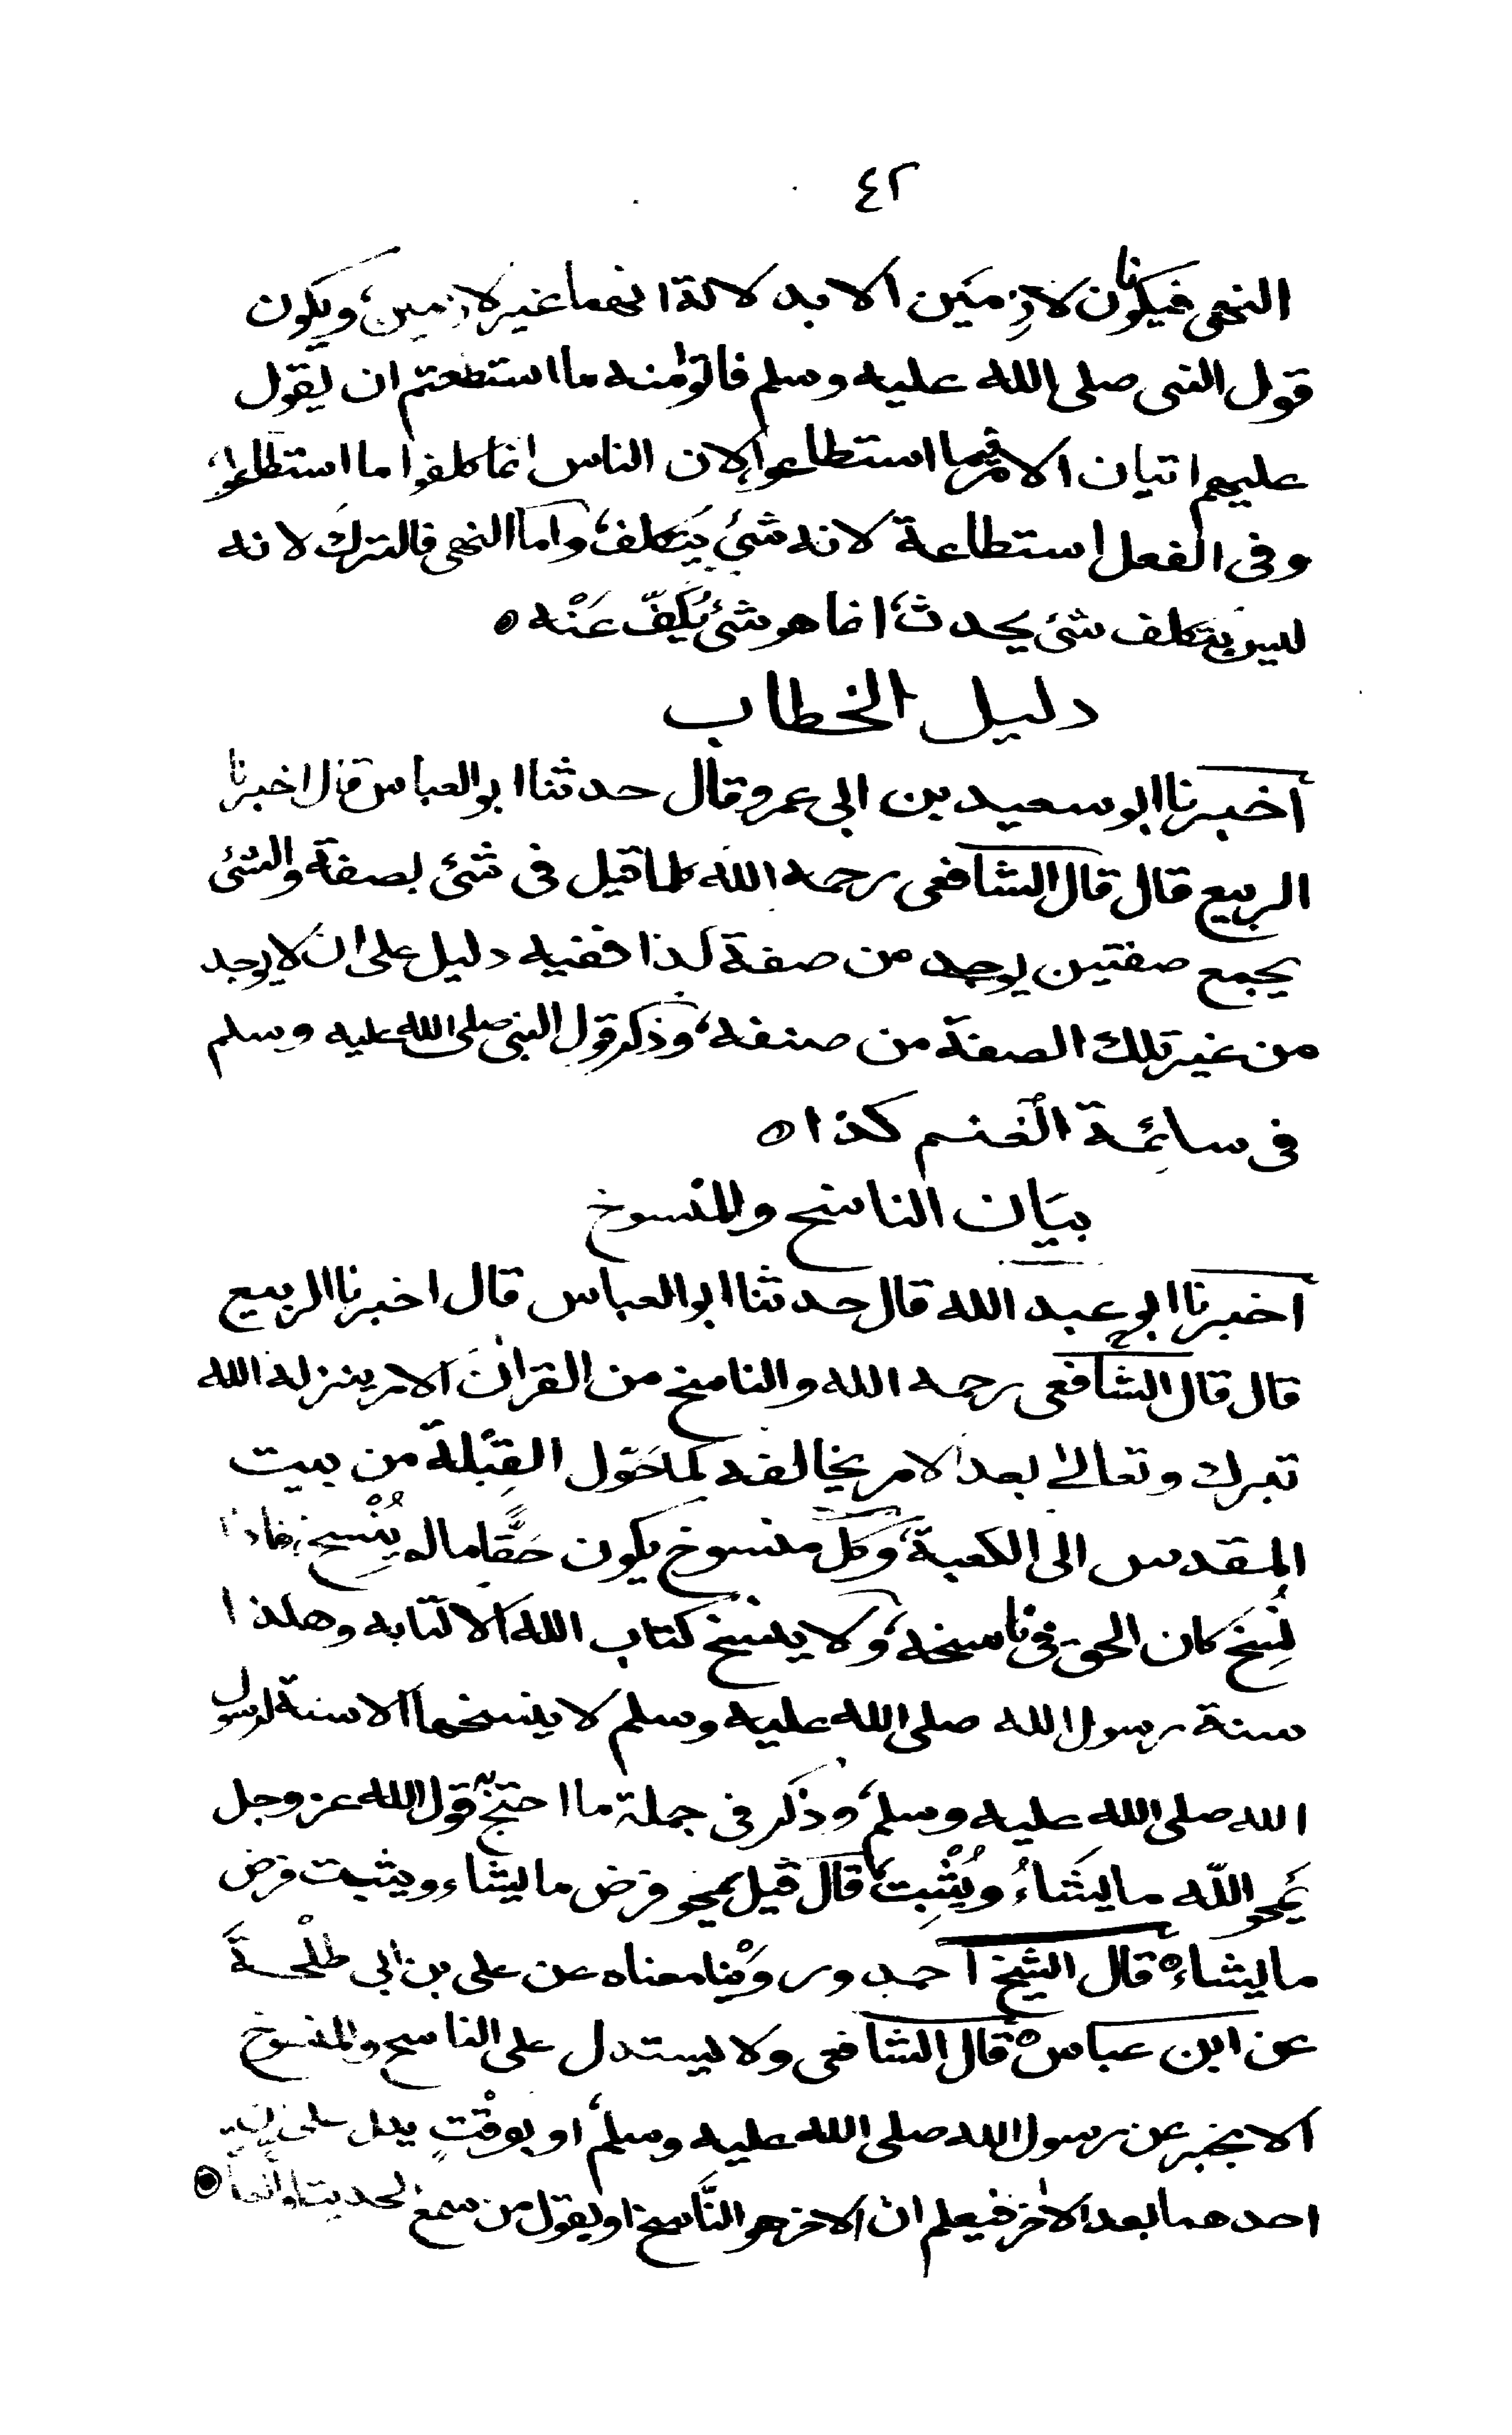 ٤٢
النهى فيكونا لازِمَين الا بدلالة انهما غير لازمين، ويكون
قول النبى صلى الله عليه وسلم فاتوا منه ما استطعتم ان يقول
عليهم اتيان الامر فيما استطاعوا لان الناس انما كلفوا ما استطاعوا،
وفى الفعل استطاعة لانه شئ يتكلف، واما النهى فالترك لانه
ليس بتكلف شئ يحدث، انما هو شئ يُكَفّ عَنْه ه
دليل الخطاب
اخبرنا ابو سعيد بن ابى عمرو قال حدثنا ابو العباس قال اخبرنا
الربيع قال قال الشافعى رحمه الله كلما قيل فى شئ بصفة والشئ
يجمع صفتين يوجد من صفة كذا ففيه دليل على ان لا يوجد
من غير تلك الصفة من صنفه، وذكر قول النبى صلى الله عليه وسلم
فى سائمة الغنم كذا ه
بيَان الناسخ والمنسوخ
اخبرنا ابو عبد الله قال حدثنا ابو العباس قال اخبرنا الربيع
قال قال الشافعى رحمه الله والناسخ من القران الامر ينزله الله
تبرك وتعالى بعد الامر يخالفه كما حَوّل القِبْلة من بيت
المقدس الى الكعبة، وكل منسوخ يكون حَقًّا ما لم يُنْسخ فاذا
نُسِخ كان الحق فى ناسخه، ولا ينسخ كتاب الله الا كتابه وهكذا
سنة رسول الله صلى الله عليه وسلم لا ينسخها الا سنة لرسول
الله صلى الله عليه وسلم، وذكر فى جملة ما احتج به قول الله عز وجل
يَمحو الله ما يشَاءُ ويُثْبِت، قال قيل يمحو فرض ما يشاء ويثبت فرض
ما يشاء ه قال الشيخ احمد وروَيْنا معناه عن على بن ابى طلْحَة
عن ابن عباس ه قال الشافعى ولا يستدل على الناسخ والمنسوخ
الا بخبر عن رسول الله صلى الله عليه وسلم، او بوقْتٍ يدل على ان
احدهما بعد الاخر فيعلم ان الاخر هو النَّاسخ او يقول من سمع الحديث